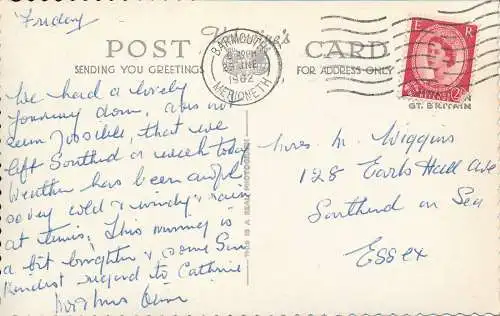 Friday
POST CARD
SENDING YOU GREETINGS
FOR ADDRESS ONLY
BARMOUTH
1962
MERIONETH
E R
GT. BRITAIN
THIS IS A REAL PHOTOGRAPH
We had a lovely
journey down, does not
seem possible, that we
left Southend a week today
Weather has been awful
so very cold & windy & rain
at times, This morning is
a bit brighter & some Sun
Kindest regard to Catherine
Mrs M Wiggins
128 Earls Hall Ave
Southend on Sea
Essex